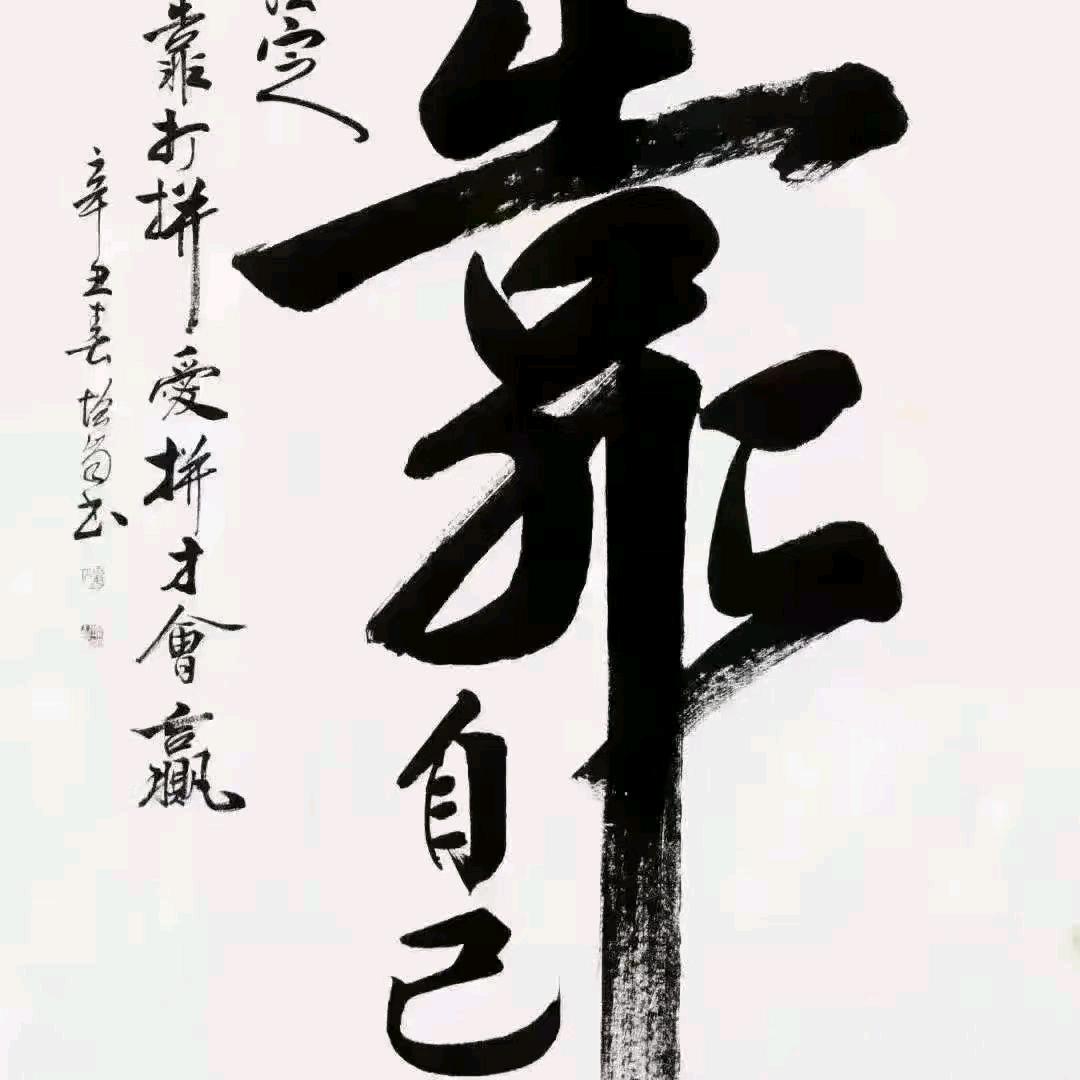 靠自己
定人
靠打拼愛拼才會贏
辛丑春书